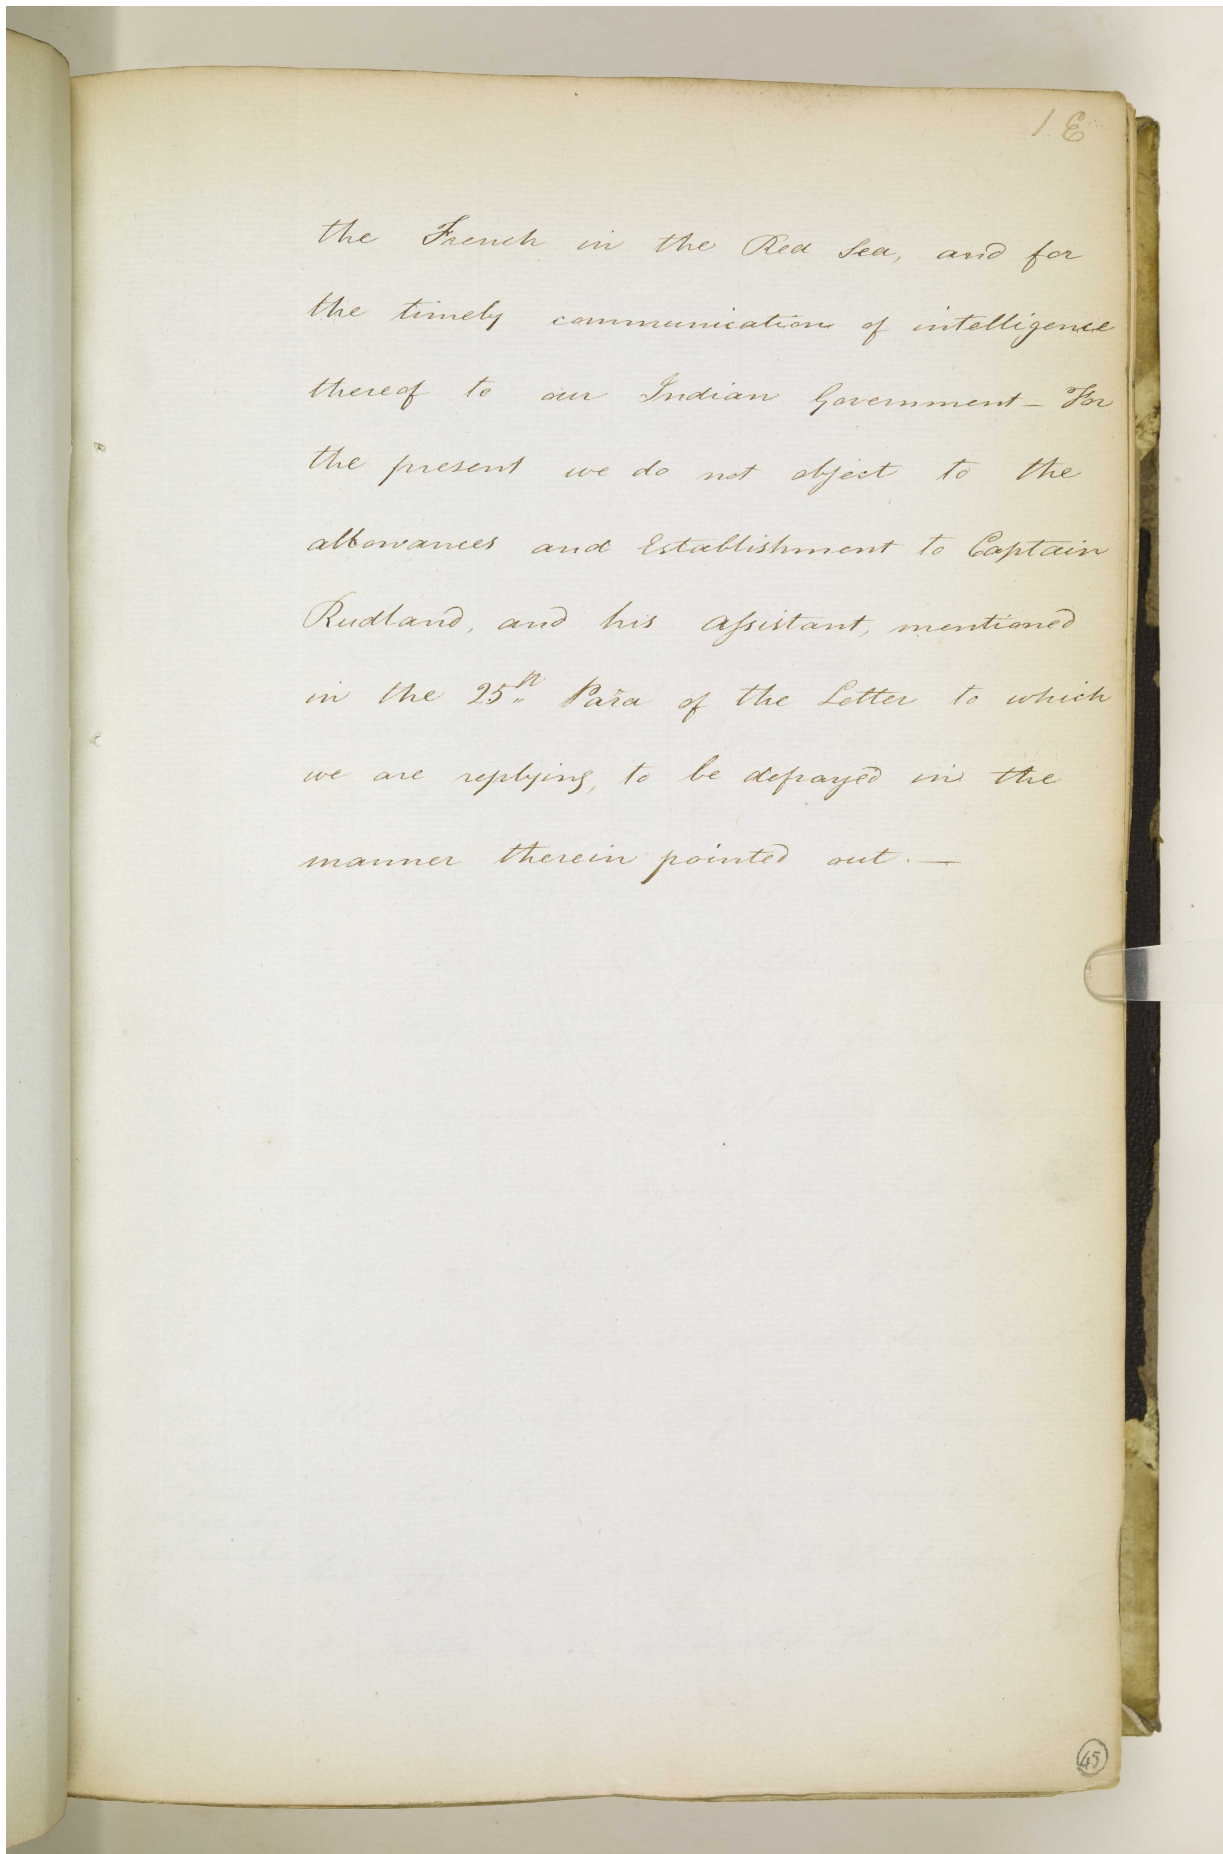 the French in the Red Sea, and for
the timely communication of intelligence
thereof to our Indian Government – For
the present we do not object to the
allowances and Establishment to Captain
Rudland, and his assistant, mentioned
in the 25th Para of the Letter to which
we are replying, to be defrayed in the
manner therein pointed out. —
45